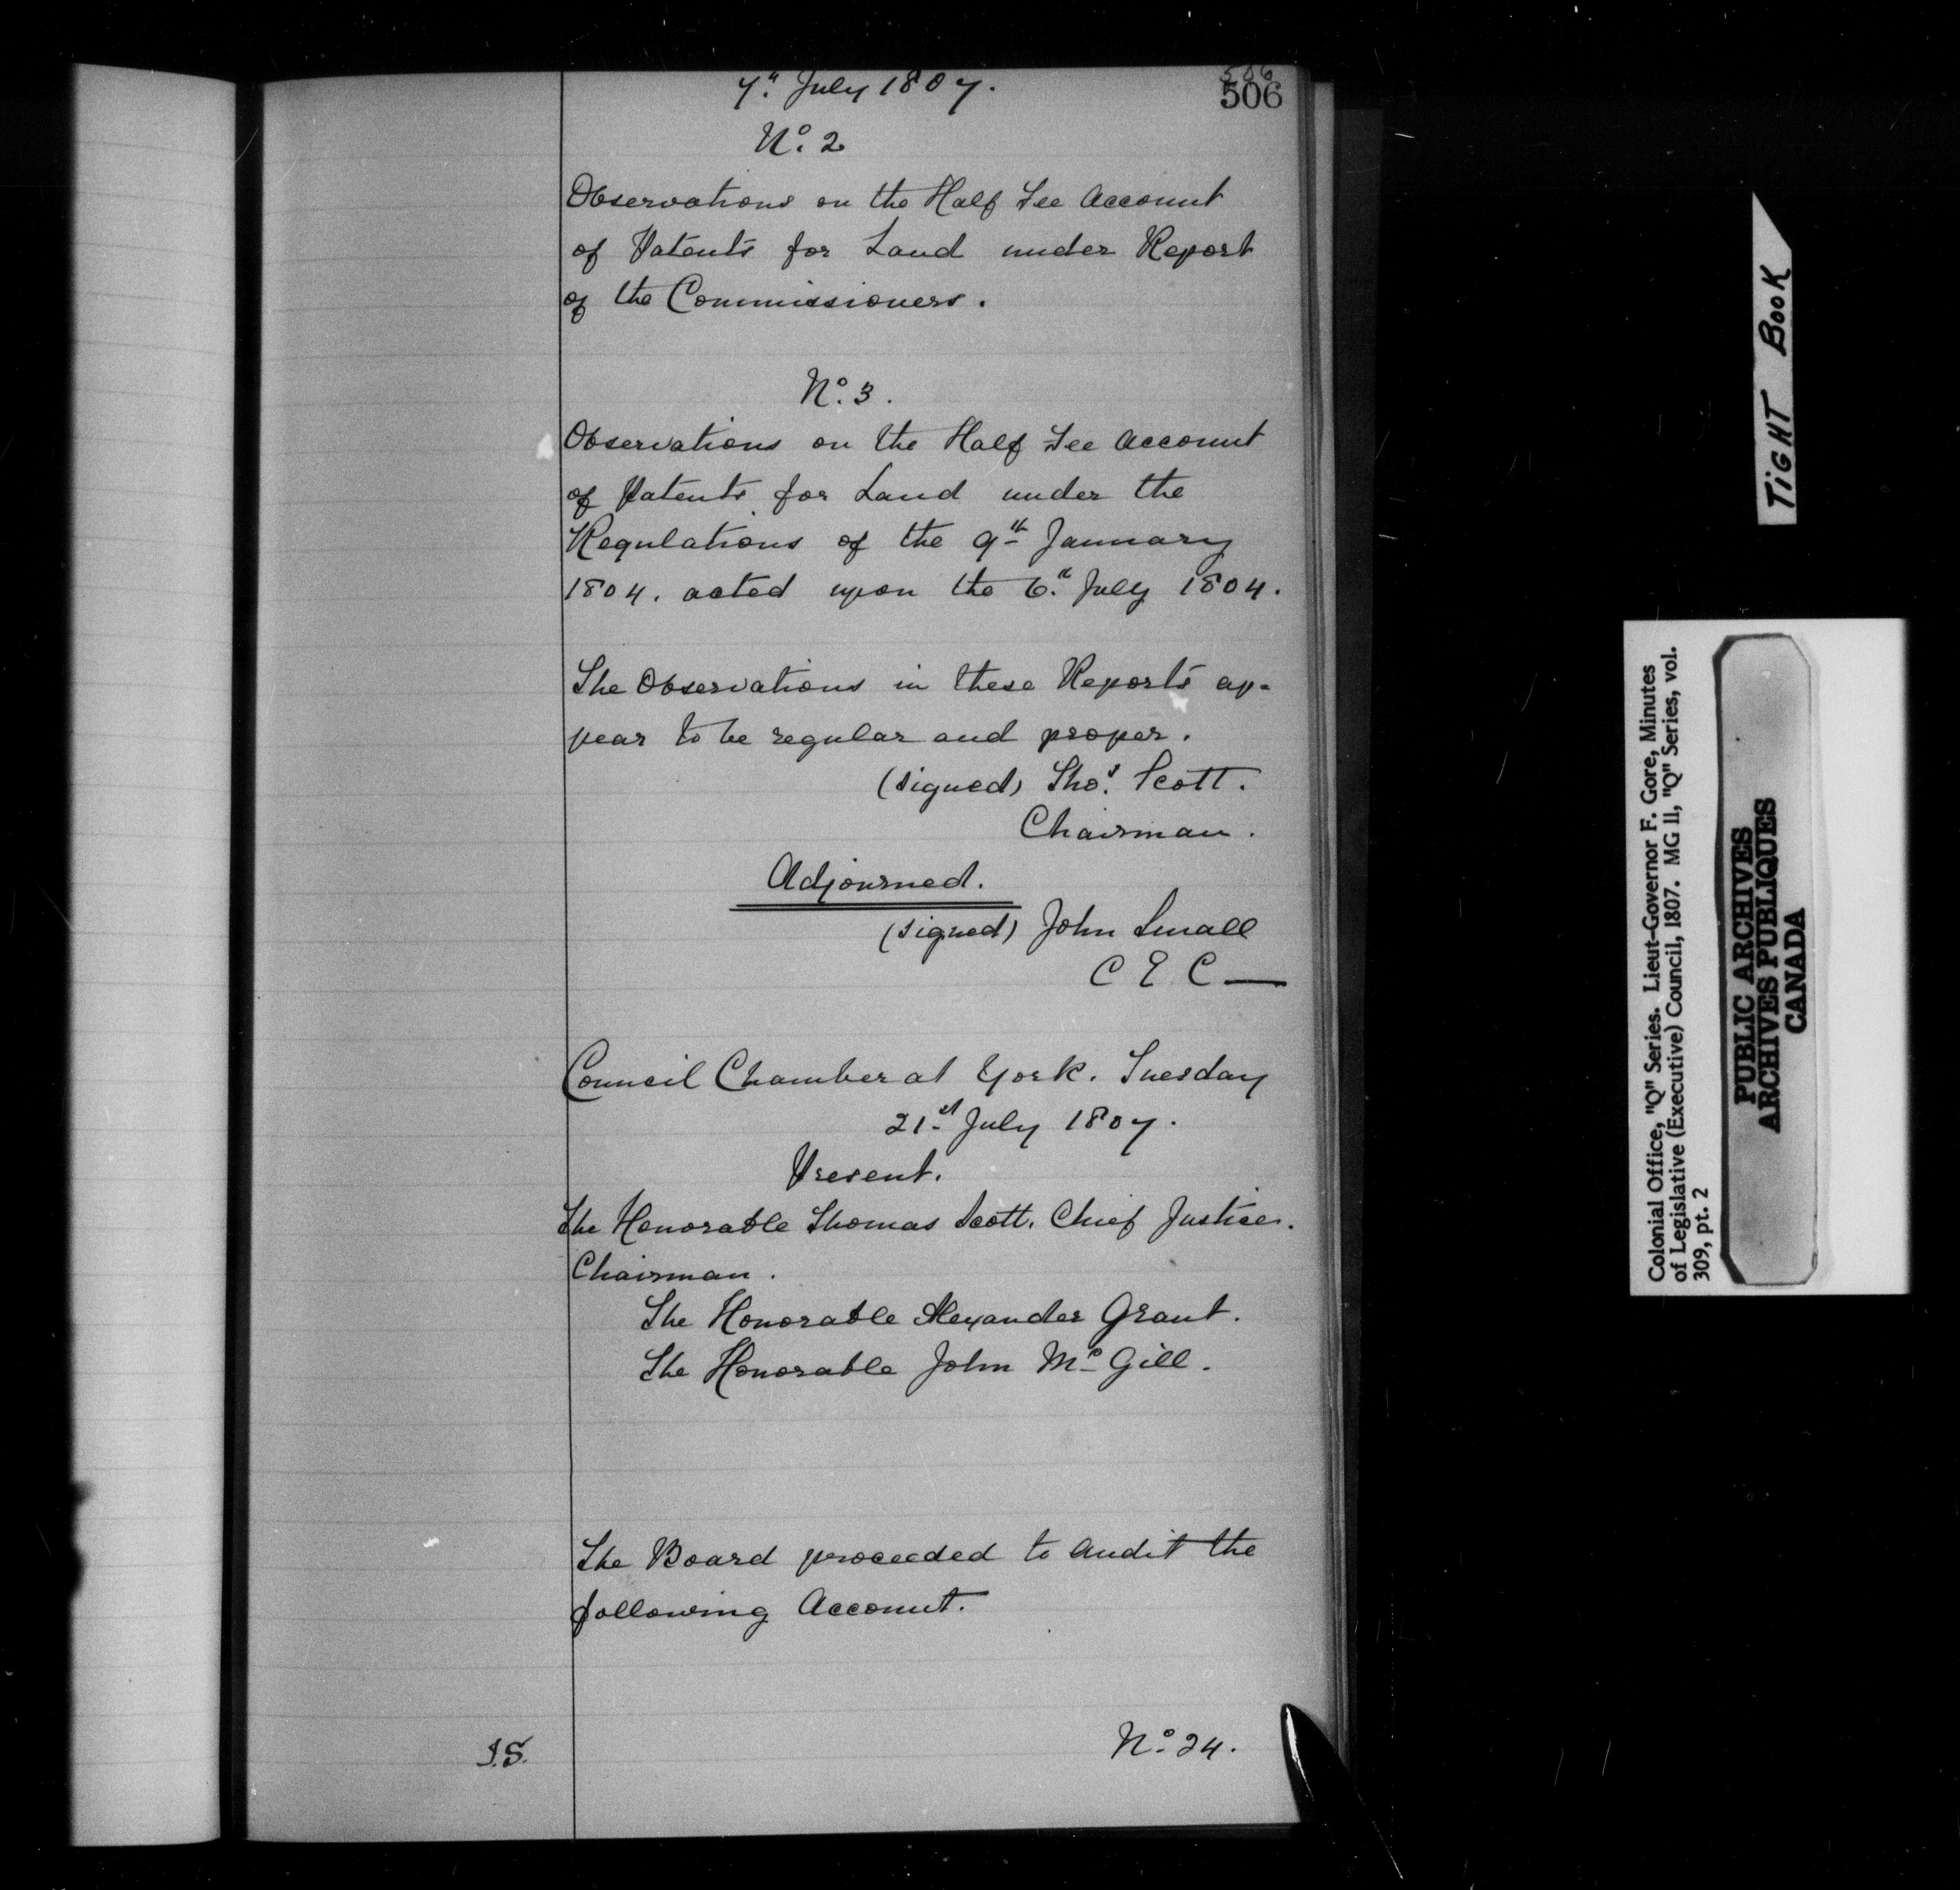 7th July 1807.
506
506
No. 2
Observations on the Half Fee Account
of Patents for Land under Report
of the Commissioners.
No. 3.
Observations on the Half Fee Account
of Patents for Land under the
Regulations of the 9th January
1804. acted upon the 6th July 1804.
The Observations in these Reports ap-
pear to be regular and proper.
(signed) Thos. Scott.
Chairman.
Adjourned.
(signed) John Small
C E C —
Council Chamber at York. Tuesday
21st July 1807.
Present.
The Honorable Thomas Scott. Chief Justice.
Chairman.
The Honorable Alexander Grant.
The Honorable John Mc Gill.
The Board proceeded to Audit the
following Account.
J.S.
No. 24.
TIGHT BOOK
Colonial Office, "Q" Series. Lieut-Governor F. Gore, Minutes
of Legislative (Executive) Council, 1807. MG 11, "Q" Series, vol.
309, pt. 2
PUBLIC ARCHIVES
ARCHIVES PUBLIQUES
CANADA